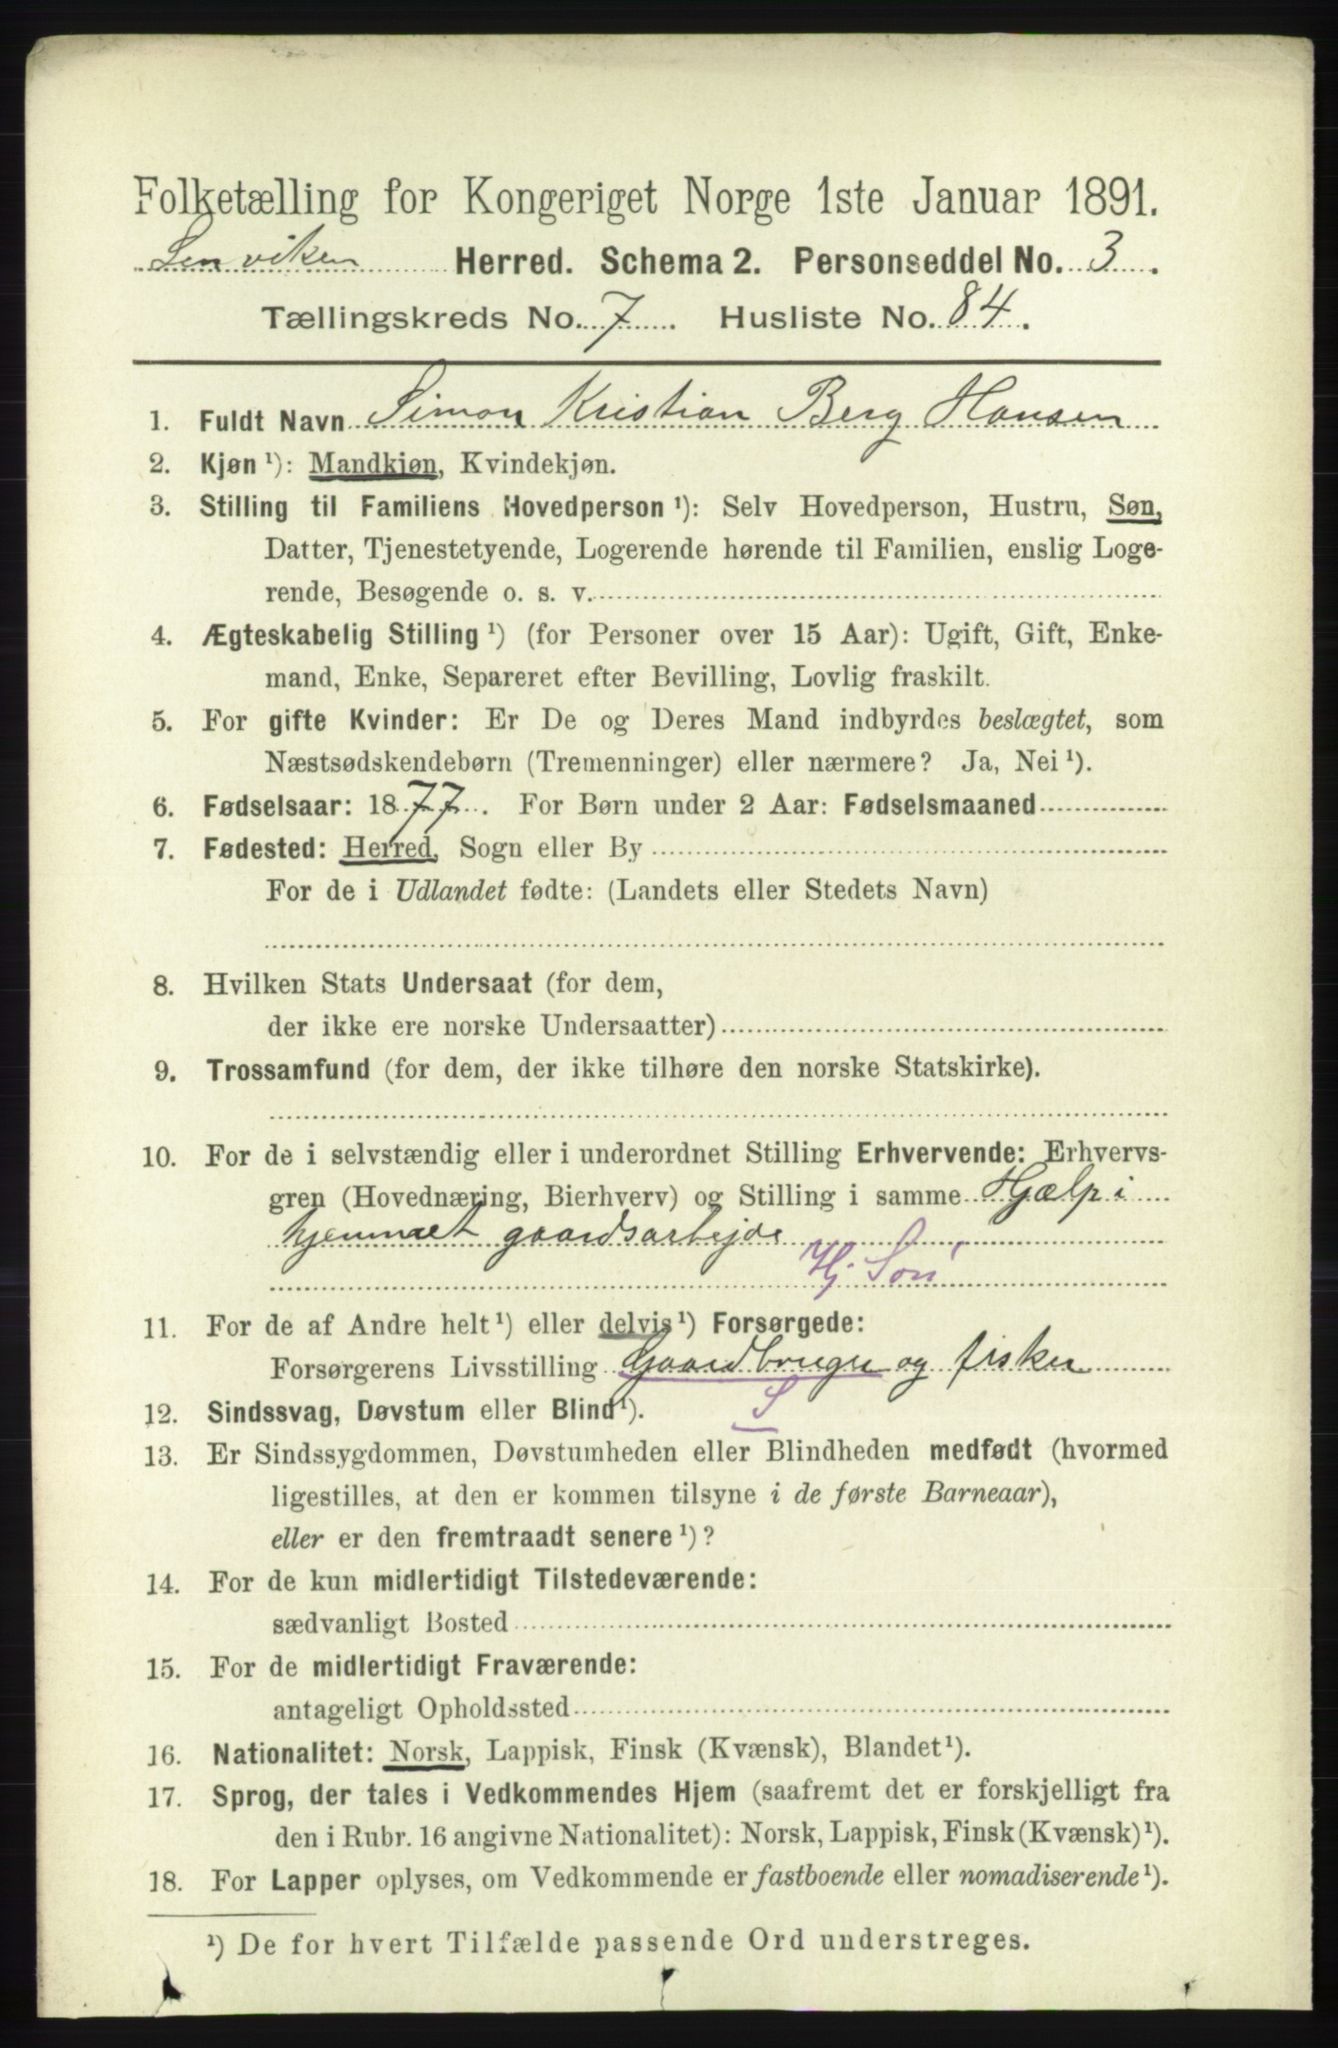 Folketælling for Kongeriget Norge 1ste Januar 1891.
Lenviken Herred. Schema 2. Personseddel No. 3.
Tællingskreds No. 7. Husliste No. 84.
1. Fuldt Navn Simon Kristian Berg Hansen
2. Kjøn ¹): Mandkjøn, Kvindekjøn.
3. Stilling til Familiens Hovedperson ¹): Selv Hovedperson, Hustru, Søn,
Datter, Tjenestetyende, Logerende hørende til Familien, enslig Loge-
rende, Besøgende o. s. v.
4. Ægteskabelig Stilling ¹) (for Personer over 15 Aar): Ugift, Gift, Enke-
mand, Enke, Separeret efter Bevilling, Lovlig fraskilt.
5. For gifte Kvinder: Er De og Deres Mand indbyrdes beslægtet, som
Næstsødskendebørn (Tremenninger) eller nærmere? Ja, Nei ¹).
6. Fødselsaar: 1877. For Børn under 2 Aar: Fødselsmaaned
7. Fødested: Herred, Sogn eller By
For de i Udlandet fødte: (Landets eller Stedets Navn)
8. Hvilken Stats Undersaat (for dem,
der ikke ere norske Undersaatter)
9. Trossamfund (for dem, der ikke tilhøre den norske Statskirke).
10. For de i selvstændig eller i underordnet Stilling Erhvervende: Erhvervs-
gren (Hovednæring, Bierhverv) og Stilling i samme Hjælp i
hjemmet gaardsarbejde
Hj. Søn
11. For de af Andre helt ¹) eller delvis ¹) Forsørgede:
Forsørgerens Livsstilling Gaardbruger og fisker
S
12. Sindssvag, Døvstum eller Blind ¹).
13. Er Sindssygdommen, Døvstumheden eller Blindheden medfødt (hvormed
ligestilles, at den er kommen tilsyne i de første Barneaar),
eller er den fremtraadt senere ¹)?
14. For de kun midlertidigt Tilstedeværende:
sædvanligt Bosted
15. For de midlertidigt Fraværende:
antageligt Opholdssted
16. Nationalitet: Norsk, Lappisk, Finsk (Kvænsk), Blandet ¹).
17. Sprog, der tales i Vedkommendes Hjem (saafremt det er forskjelligt fra
den i Rubr. 16 angivne Nationalitet): Norsk, Lappisk, Finsk (Kvænsk) ¹).
18. For Lapper oplyses, om Vedkommende er fastboende eller nomadiserende ¹).
¹) De for hvert Tilfælde passende Ord understreges.